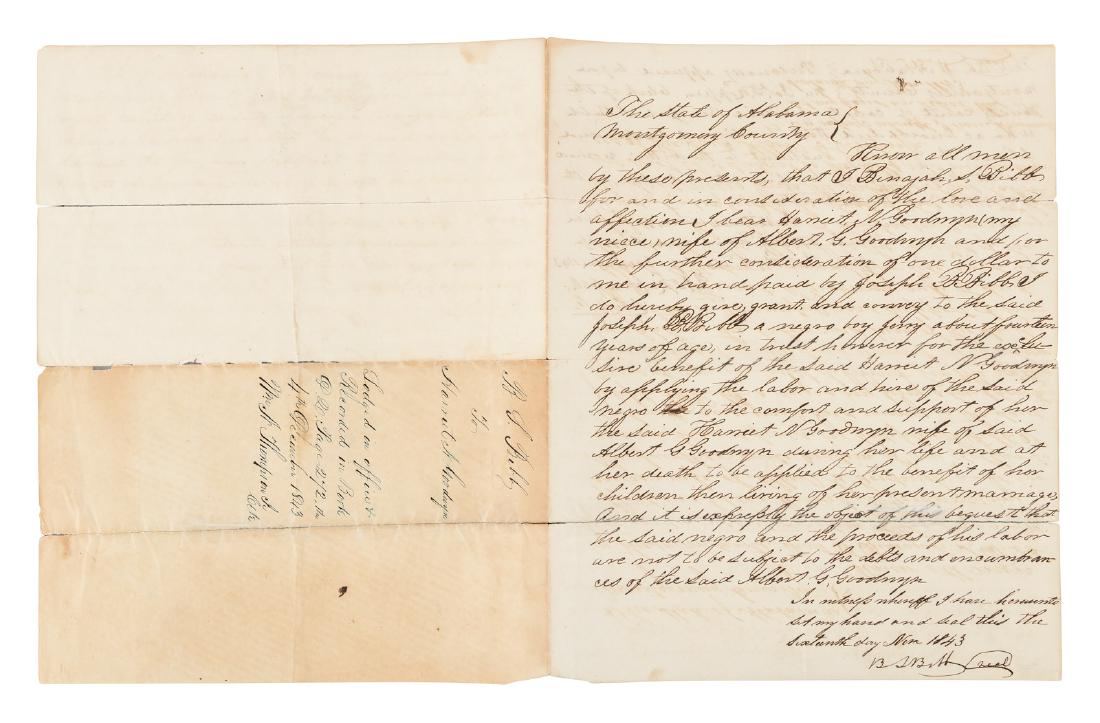 The State of Alabama
Montgomery County
Know all men
by these presents, that I Binajah, S, Bibb
for and in consideration of the love and
affection I bear Harriet N Goodwyn, my
niece, wife of Albert. G. Goodwyn and for
the further consideration of one dollar to
me in hand paid by Joseph B. Bibb, I
do hereby give, grant, and convey to the said
Joseph, B Bibb a negro boy about fourteen
years of age, in trust however for the exclu-
sive benefit of the said Harriet N Goodwyn
by applying the labor and hire of the said
negro to the comfort and support of her
the said Harriet N Goodwyn wife of said
Albert G Goodwyn during her life and at
her death to be applied to the benefit of her
children then living of her present marriage,
And it is expressly the object of this bequest that
the said negro and the proceeds of his labor
are not to be subject to the debts and encumbran-
ces of the said Albert. G. Goodwyn
In witness whereoff I have hereunto
set my hand and seal this the
sixteenth day Nov 1843
B S Bibb seal
B. S. Bibb
To
Harriet N. Goodwyn
Lodged in office &
Recorded in Book
Page 272 the
4th December 1843
Wm H. Thompson
Clk